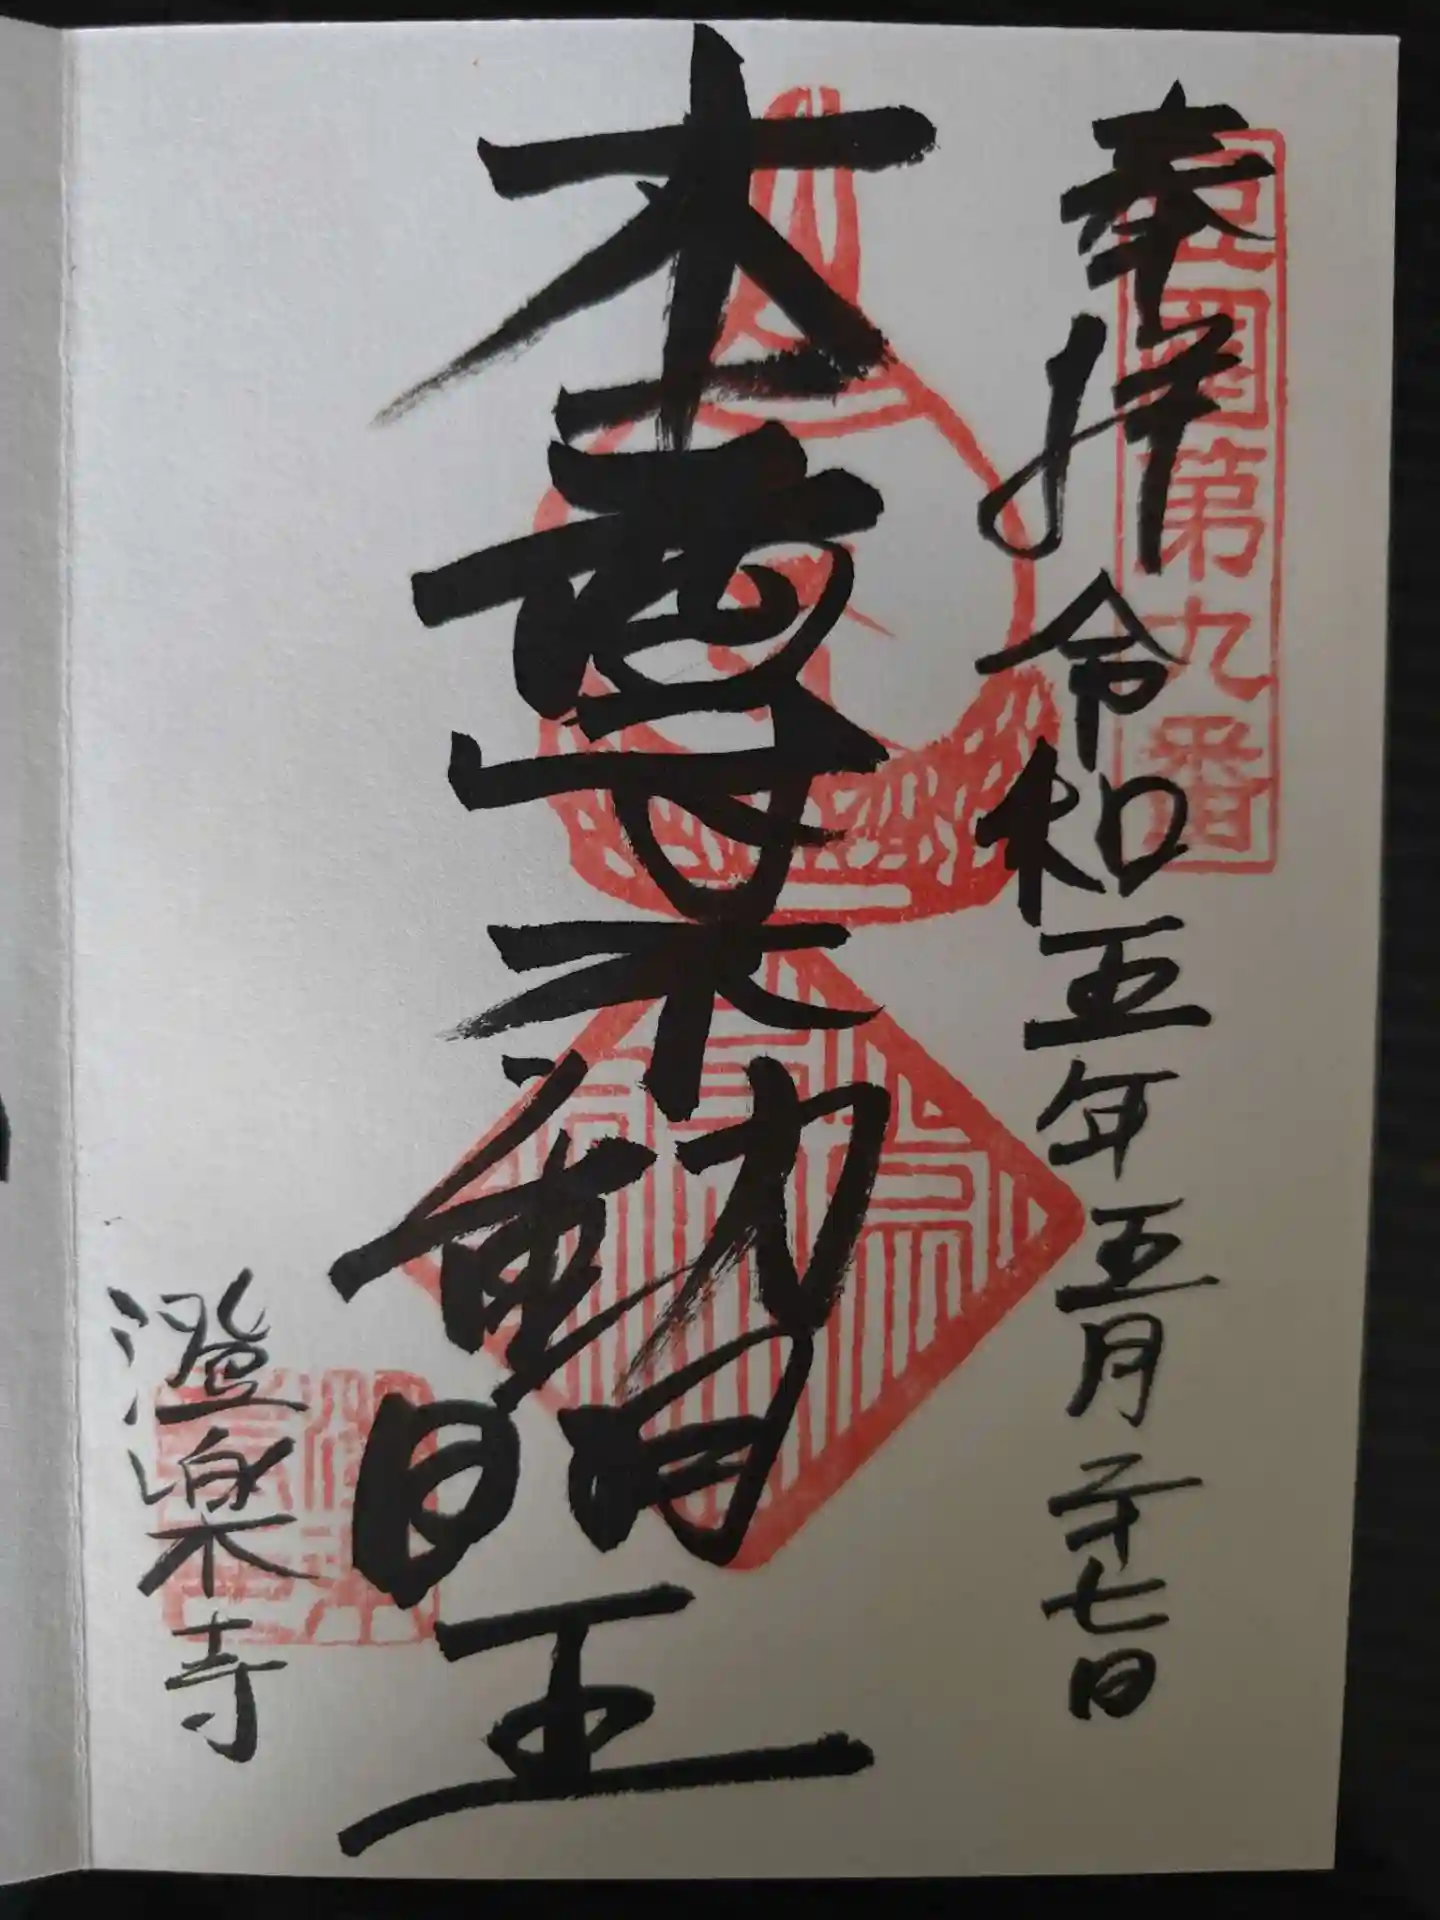 奉拝 令和五年五月二十七日
豆國第九番
本尊不動明王
澄楽寺